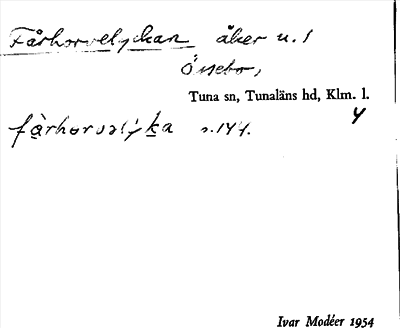 Fårhorvelyckan åker u. 1
Örsebo,
Tuna sn, Tunaläns hd, Klm. l.
4
s. 144.
Ivar Modéer 1954